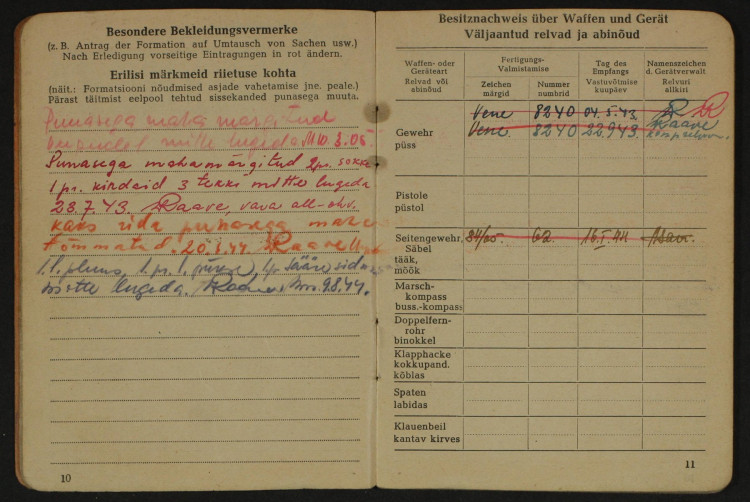 Besondere Bekleidungsvermerke
(z. B. Antrag der Formation auf Umtausch von Sachen usw.)
Nach Erledigung vorseitige Eintragungen in rot ändern.
Erilisi märkmeid riietuse kohta
(näit.: Formatsiooni nõudmised asjade vahetamise jne. peale.)
Pärast täitmist eelpool tehtud sissekanded punasega muuta.
Punasega maha märgitud
mitte lugeda
Punasega maha märgitud 2 pr. sokke
1 pr. kindaid 3 tekki mitte lugeda
28.7.43. Raave, vava all-ohv.
kaks rida punasega maha
tõmmatud. 20.1.44. Raave
mitte lugeda. Raave 9.8.44.
10
Besitznachweis über Waffen und Gerät
Väljaantud relvad ja abinõud
Waffen- oder Geräteart Relvad või abinõud
Fertigungs-Valmistamise
Zeichen märgid
Nummer numbrid
Tag des Empfangs Vastuvõtmise kuupäev
Namenszeichen d. Gerätverwalt Relvuri allkiri
Gewehr püss
Vene 8240 04.5.43.
Vene 8240 22.9.43. Raave
Pistole püstol
Seitengewehr, Säbel tääk, mõõk
84/05. 62. 16.I.44
Marsch-kompass buss.-kompass
Doppelfern-rohr binokkel
Klapphacke kokkupand. kõblas
Spaten labidas
Klauenbeil kantav kirves
11